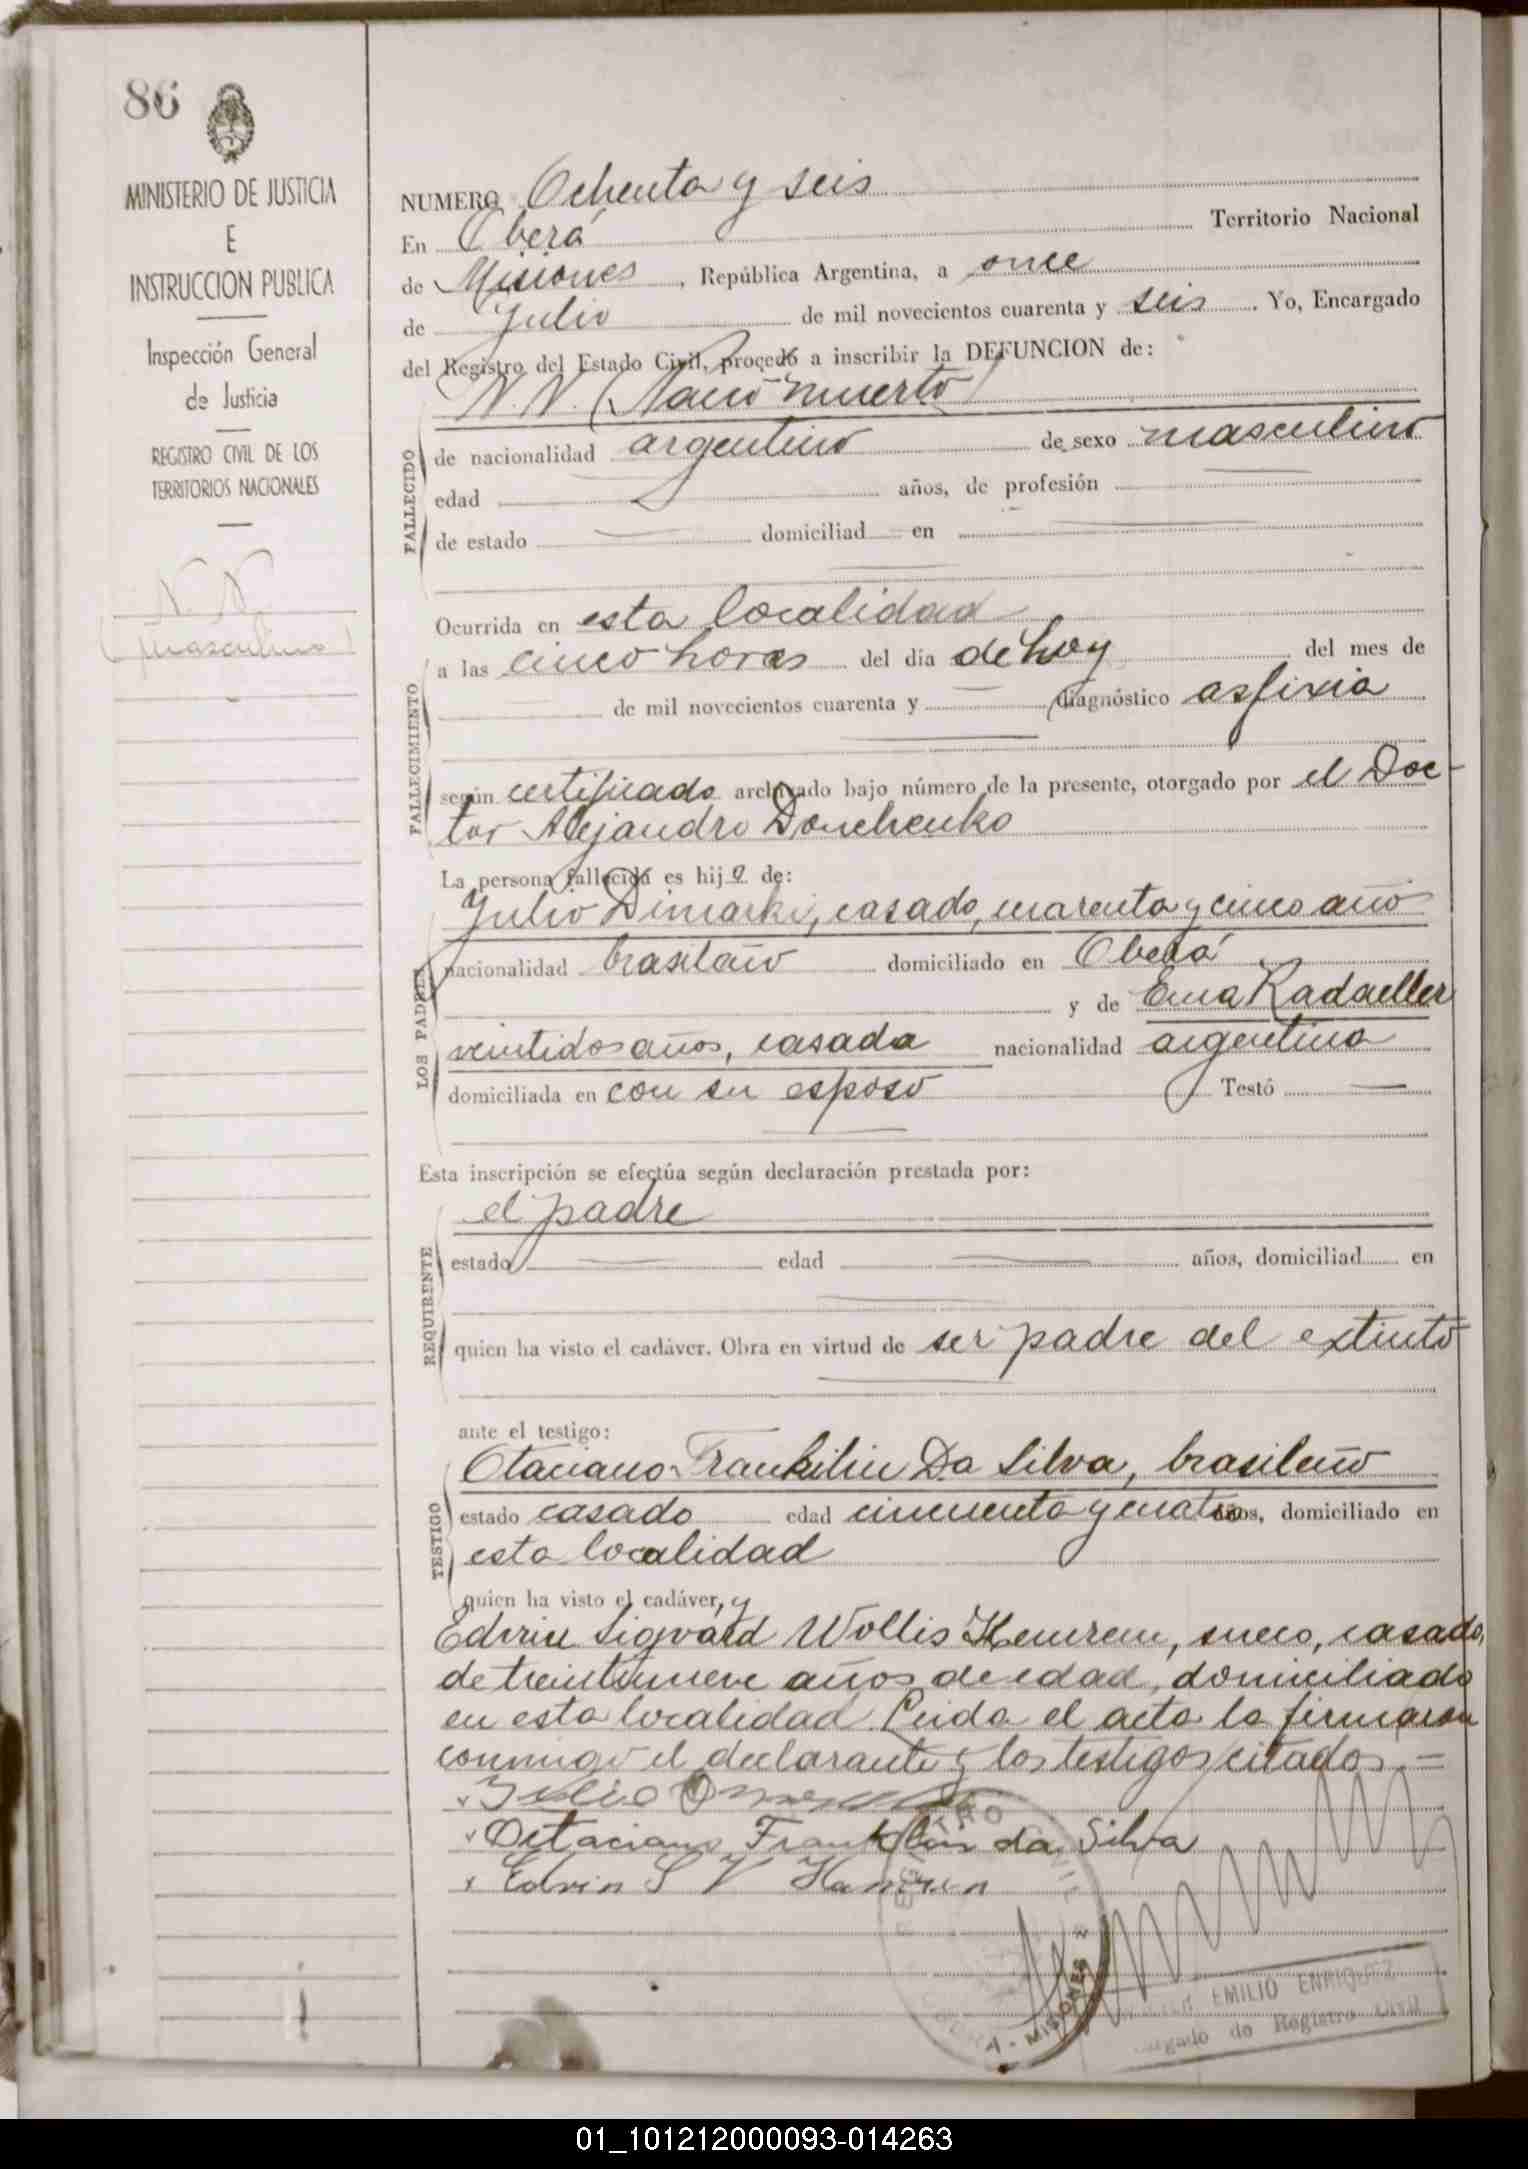 86
MINISTERIO DE JUSTICIA
E
INSTRUCCION PUBLICA
Inspección General
de Justicia
REGISTRO CIVIL DE LOS
TERRITORIOS NACIONALES
N. N.
(masculino)
NUMERO Ochenta y seis
En Oberá Territorio Nacional
de Misiones, República Argentina, a once
de Julio de mil novecientos cuarenta y seis. Yo, Encargado
del Registro del Estado Civil, procedo a inscribir la DEFUNCION de:
N. N. (Nació muerto)
FALLECIDO
de nacionalidad argentino de sexo masculino
edad años, de profesión
de estado domiciliad en
FALLECIMIENTO
Ocurrida en esta localidad
a las cinco horas del día de hoy del mes de
de mil novecientos cuarenta y diagnóstico asfixia
según certificado archivado bajo número de la presente, otorgado por el Doc-
tor Alejandro Donchenko
La persona fallecida es hijo de:
LOS PADRES
Julio Dimarki, casado, cuarenta y cinco año
nacionalidad brasilaño domiciliado en Oberá
y de Ema Radaeller
veintidos años, casada nacionalidad argentina
domiciliada en con su esposo Testó
Esta inscripción se efectúa según declaración prestada por:
REQUIRENTE
el padre
estado edad años, domiciliad en
quien ha visto el cadáver. Obra en virtud de ser padre del extinto
ante el testigo:
TESTIGO
Otaciano Frankilin Da Silva, brasileño
estado casado edad cincuenta y cuatro años, domiciliado en
esta localidad
quien ha visto el cadáver, y
Edvin Sigvard Wollis, sueco, casado,
de treintinueve años de edad, domiciliado
en esta localidad. Leida el acta la firmaron
conmigo el declarante y los testigos citados.—
Julio
Octaciano Franklin da Silva
Edvin S V Hamren
REGISTRO CIVIL
OBERA - MISIONES
EMILIO ENRIQUEZ
Encargado de Registro Civil
01_101212000093-014263